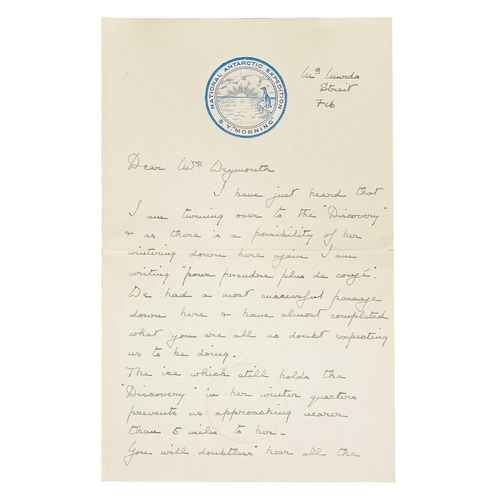 NATIONAL ANTARCTIC EXPEDITION
S.Y. "MORNING"
Mc Murdo
Strait
Feb
Dear Mrs Weymouth
I have just heard that
I am turning over to the "Discovery"
& as there is a possibility of her
wintering down here again I am
writing "pour prendre plus de congé".
We had a most successful passage
down here & have almost completed
what you are all no doubt expecting
us to be doing.
The ice which still holds the
"Discovery" in her winter quarters
prevents us approaching nearer
than 5 miles to her.
You will doubtless hear all the